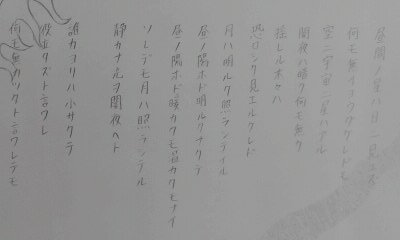 昼間ノ星ハ目ニ見エズ
何モ無イヨウダケレドモ
空ニ宇宙ニ星ハアル
闇夜ハ暗ク何モ無ク
揺レル木々ハ
恐ロシク見エルケレド
月ハ明ルク照ランテイル
昼ノ陽ホド明ルクナクテ
昼ノ陽ホド暖カクモ温カクモナイ
ソレデモ月ハ照ランテル
静カナル闇夜ヘト
誰カヨリハ小サクテ
役立タズト言ワレ
何モ無カッタト言ワレテモ